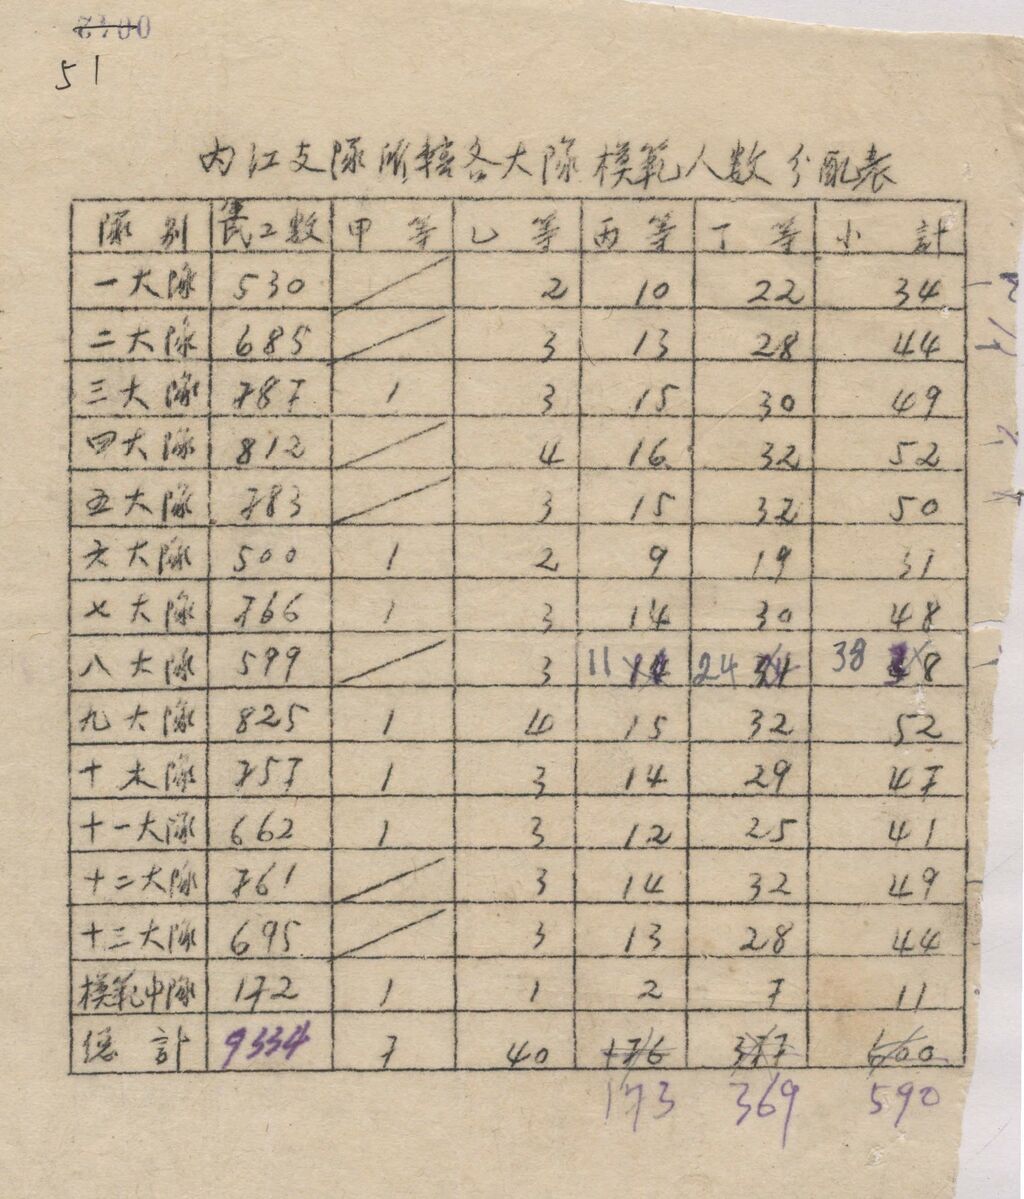 51
内江支隊所轄各大隊模範人数分配表
隊別 民工數 甲等 乙等 丙等 丁等 小計
一大隊 530 2 10 22 34
二大隊 685 3 13 28 44
三大隊 787 1 3 15 30 49
四大隊 812 4 16 32 52
五大隊 783 3 15 32 50
六大隊 500 1 2 9 19 31
七大隊 766 1 3 14 30 48
八大隊 599 3 11 24 38
九大隊 825 1 4 15 32 52
十大隊 757 1 3 14 29 47
十一大隊 662 1 3 12 25 41
十二大隊 761 3 14 32 49
十三大隊 695 3 13 28 44
模範中隊 172 1 1 2 7 11
總計 9334 7 40 176 377 600
173 369 590